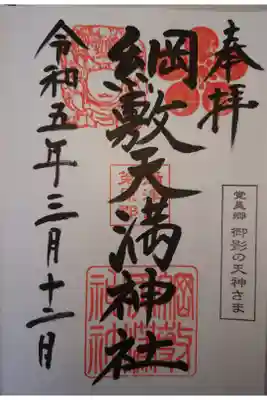 奉拝
綱敷天満神社
令和五年三月十二日
御影の天神さま